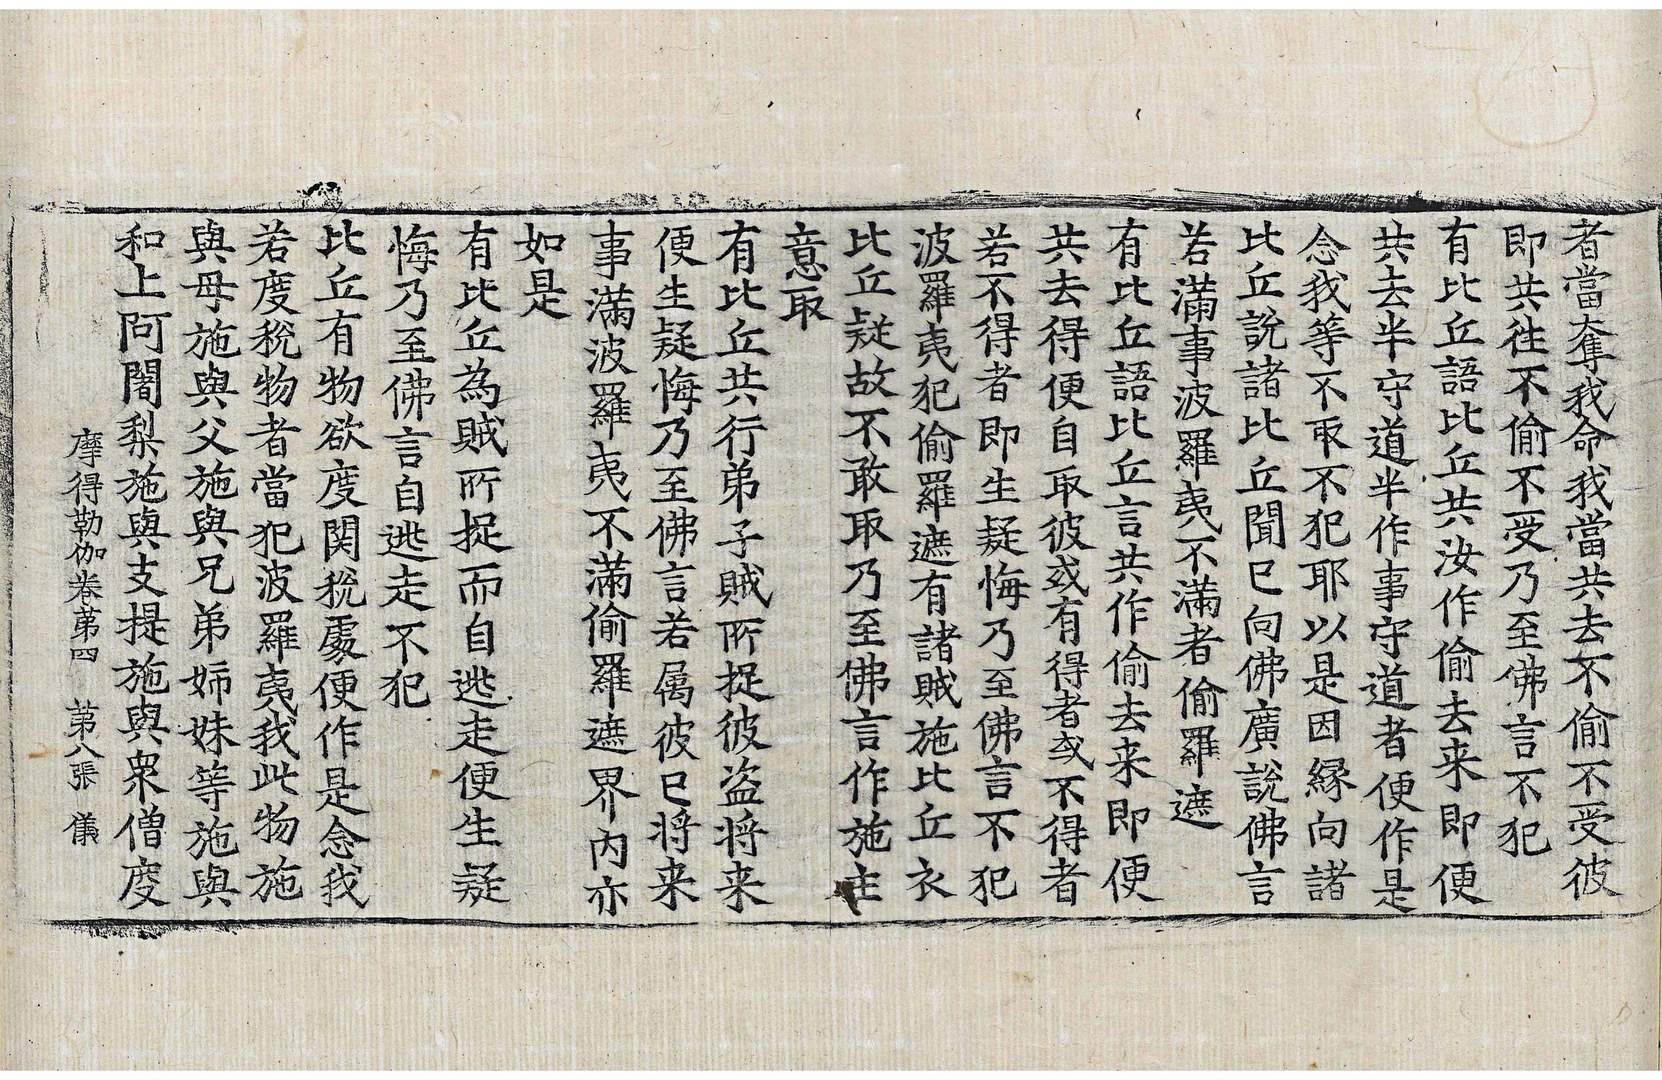 者當奪我命我當共去不偷不受彼
即共徃不偷不受乃至佛言不犯
有比丘語比丘共汝作偷去来即便
共去半守道半作事守道者便作是
念我等不取不犯耶以是因縁向諸
比丘說諸比丘聞已向佛廣說佛言
若滿事波羅夷不滿者偷羅遮
有比丘語比丘言共作偷去来即便
共去得便自取彼或有得者或不得者
若不得者即生疑悔乃至佛言不犯
波羅夷犯偷羅遮有諸賊施比丘衣
比丘疑故不敢取乃至佛言作施主
意取
有比丘共行弟子賊所捉彼盗将来
便生疑悔乃至佛言若属彼已将来
事滿波羅夷不滿偷羅遮界內亦
如是
有比丘為賊所捉而自逃走便生疑
悔乃至佛言自逃走不犯
比丘有物欲度関稅處便作是念我
若度稅物者當犯波羅夷我此物施
與母施與父施與兄弟姉妹等施與
和上阿闍梨施與支提施與衆僧度
摩得勒伽卷苐四 第八張 儀